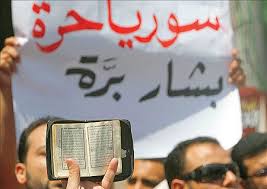 سوريا حرة
بشار برَّة